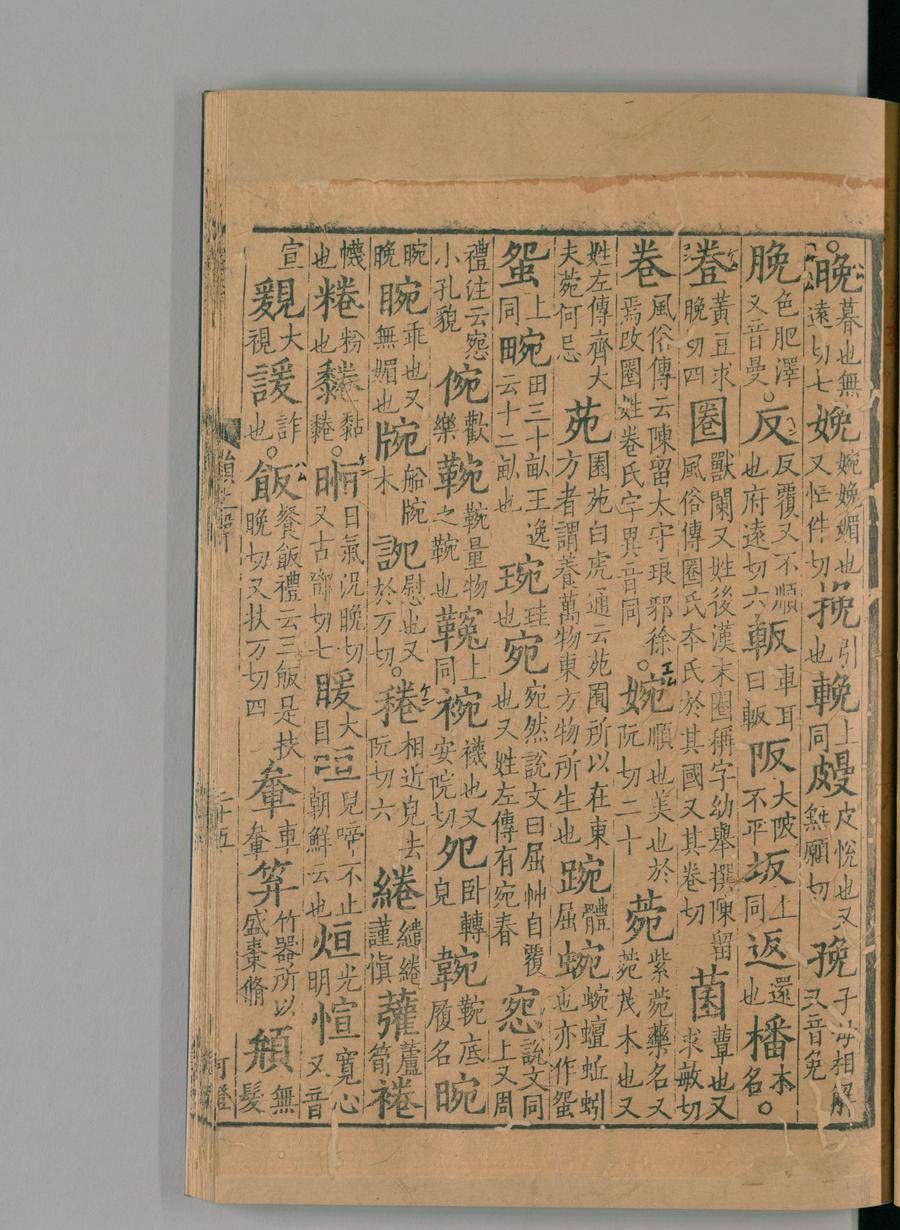 ○晚暮也無遠切七娩婉娩媚也又忙件切挽引也輓上同㿸皮悅也又無願切㝃子母相解又音免
脕色肥澤又音曼○反反覆又不順也府遠切六䡊車耳曰䡊阪大陂不平坂上同返還也橎木名○
𧯦黃豆求晚切四圈獸闌又姓後漢末圈稱字幼舉撰陳留風俗傳圈氏本氏於其國又其卷切菌蕈也又求敏切
卷風俗傳云陳留太守琅邪徐焉改圈姓卷氏字異音同○婉順也美也於阮切二十菀紫菀藥名又菀茂木也又
姓左傳齊大夫菀何忌苑園苑白虎通云苑囿所以在東方者謂養萬物東方物所生也踠體屈蜿蜿蟺蚯蚓也亦作䖤
䖤上同畹田三十畝王逸云十二畝也琬珪也宛宛然說文曰屈艸自覆也又姓左傳有宛春惌說文同上又周
禮注云惌小孔貌倇歡樂䩩䩩量物之䩩也上同襪也又安院切夗臥轉皃䩩底履名晼
晼晚䀂乖也又無媚也船木慰也又於万切○相近皃去阮切六綣繾綣謹愼虇蘆筍裷
幭也粣粉也黏○暅日氣況晚切又古鄧切七暖大目咺兒啼不止朝鮮云也烜光明愃寬心又音
宣大視諼詐也○飯餐飯禮云三飯是扶晚切又扶万切四軬車軬笲竹器所以盛棗脩無髮